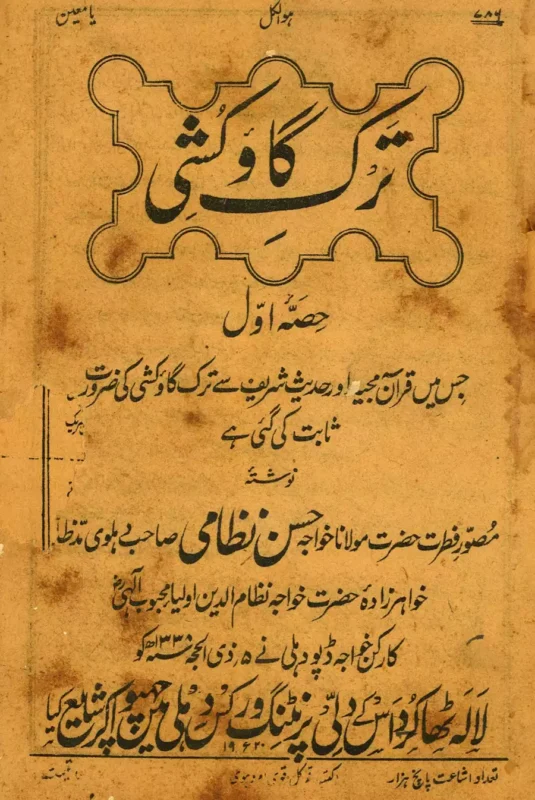 ۷۸۶ ہوالکل یا معین
ترکِ گاؤ کُشی
حصّہ اوّل
جس میں قرآن مجید اور حدیث شریف سے ترک گاؤ کشی کی ضرورت
ثابت کی گئی ہے
نوشتۂ
مصوّر فطرت حضرت مولانا خواجہ حسن نظامی صاحب دہلوی مدظلہ
خواہرزادۂ حضرت خواجہ نظام الدین اولیا محبوب الٰہی رض
کارکن خواجہ ڈپو دہلی نے ۵ ذی الحجہ ۱۳۳۸ھ کو
لالہ ٹھاکر داس کے دلّی پرنٹنگ ورکس دہلی میں چھپوا کر شایع کیا
۱۹۲۰ء
تعداد اشاعت پانچ ہزار قیمت